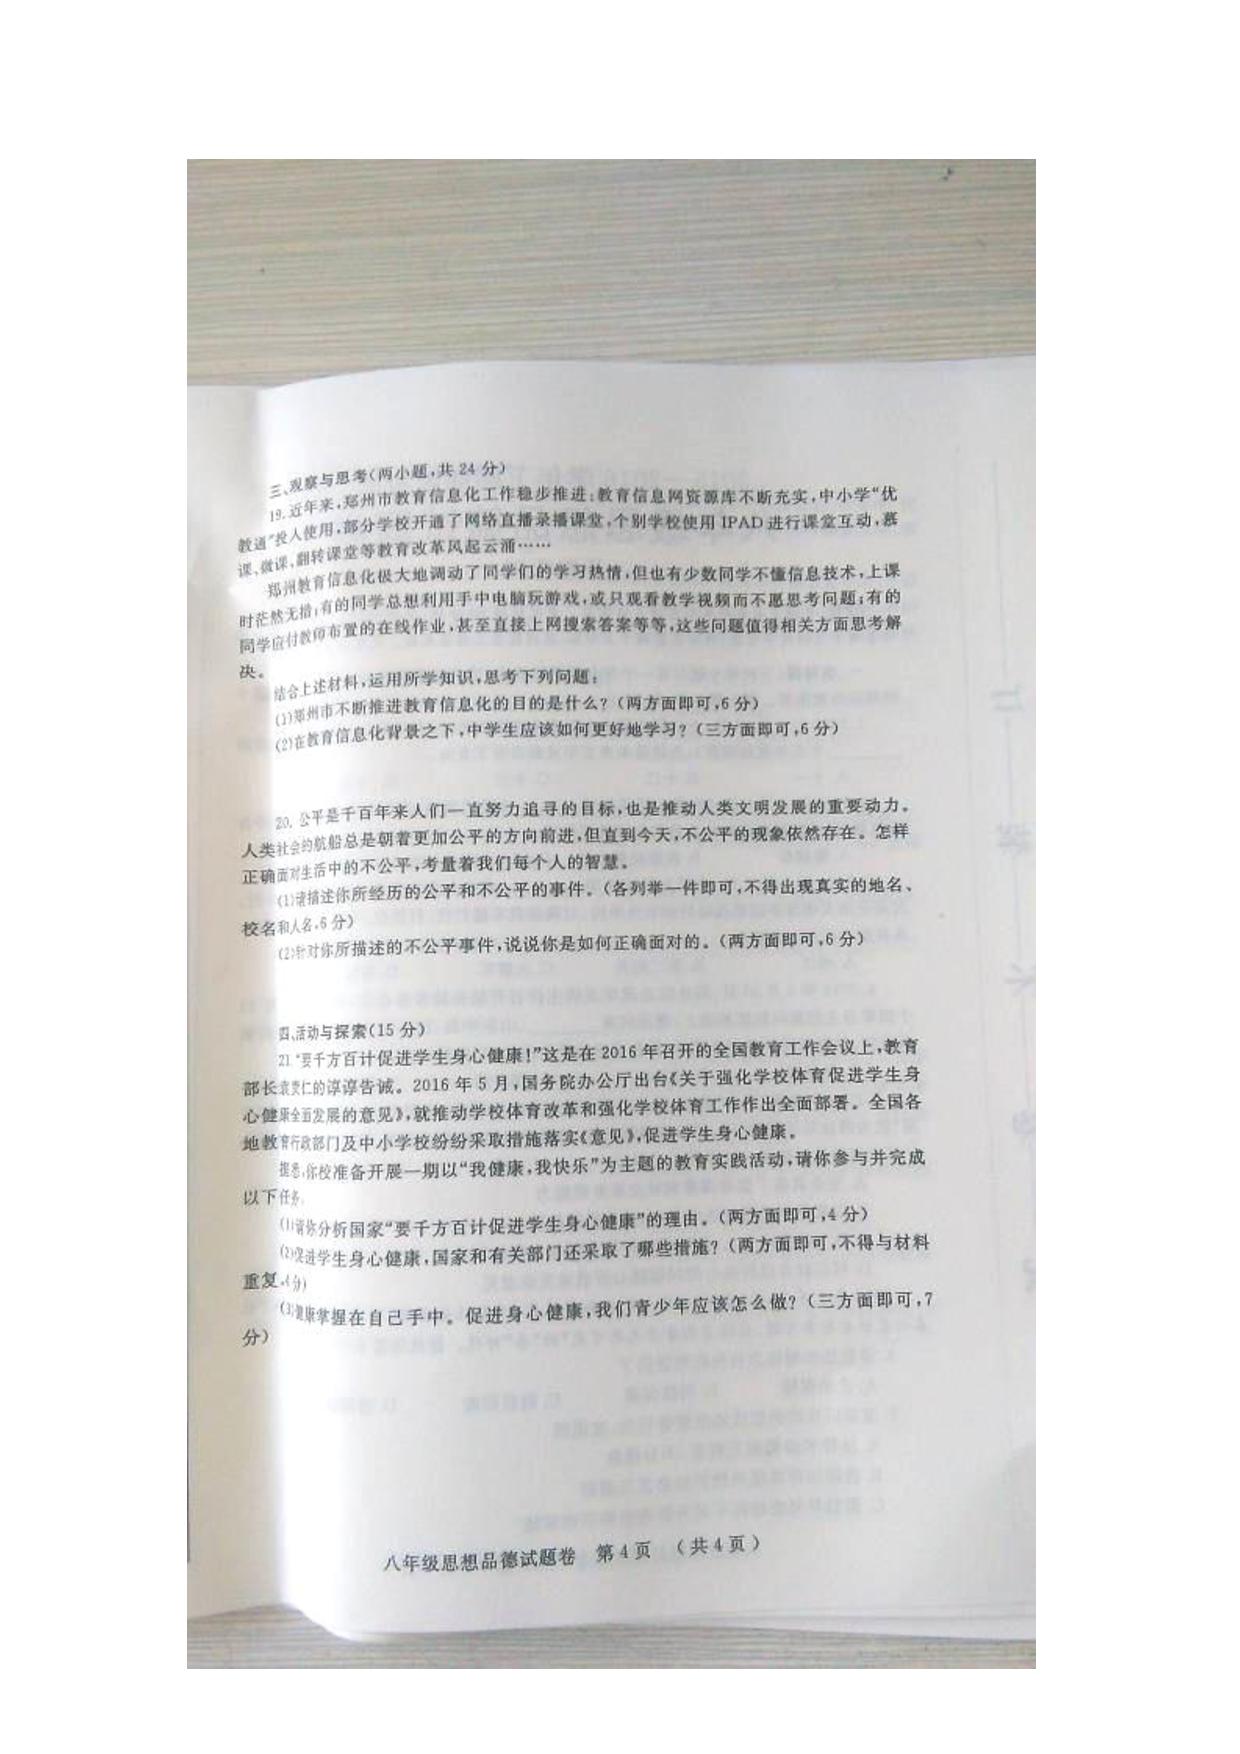 三、观察与思考(两小题,共24分)
19.近年来,郑州市教育信息化工作稳步推进:教育信息网资源库不断充实,中小学“优
教通”投入使用,部分学校开通了网络直播录播课堂,个别学校使用IPAD进行课堂互动,慕
课、微课,翻转课堂等教育改革风起云涌……
郑州教育信息化极大地调动了同学们的学习热情,但也有少数同学不懂信息技术,上课
时茫然无措;有的同学总想利用手中电脑玩游戏,或只观看教学视频而不愿思考问题;有的
同学应付教师布置的在线作业,甚至直接上网搜索答案等等,这些问题值得相关方面思考解
决。
结合上述材料,运用所学知识,思考下列问题:
(1)郑州市不断推进教育信息化的目的是什么?(两方面即可,6分)
(2)在教育信息化背景之下,中学生应该如何更好地学习?(三方面即可,6分)
20.公平是千百年来人们一直努力追寻的目标,也是推动人类文明发展的重要动力。
人类社会的航船总是朝着更加公平的方向前进,但直到今天,不公平的现象依然存在。怎样
正确面对生活中的不公平,考量着我们每个人的智慧。
(1)请描述你所经历的公平和不公平的事件。(各列举一件即可,不得出现真实的地名、
校名和人名,6分)
(2)针对你所描述的不公平事件,说说你是如何正确面对的。(两方面即可,6分)
四、活动与探索(15分)
21.“要千方百计促进学生身心健康!”这是在2016年召开的全国教育工作会议上,教育
部长袁贵仁的谆谆告诫。2016年5月,国务院办公厅出台《关于强化学校体育促进学生身
心健康全面发展的意见》,就推动学校体育改革和强化学校体育工作作出全面部署。全国各
地教育行政部门及中小学校纷纷采取措施落实《意见》,促进学生身心健康。
据悉,你校准备开展一期以“我健康,我快乐”为主题的教育实践活动,请你参与并完成
以下任务。
(1)请你分析国家“要千方百计促进学生身心健康”的理由。(两方面即可,4分)
(2)促进学生身心健康,国家和有关部门还采取了哪些措施?(两方面即可,不得与材料
重复,4分)
(3)健康掌握在自己手中。促进身心健康,我们青少年应该怎么做?(三方面即可,7
分)
八年级思想品德试题卷 第4页 (共4页)